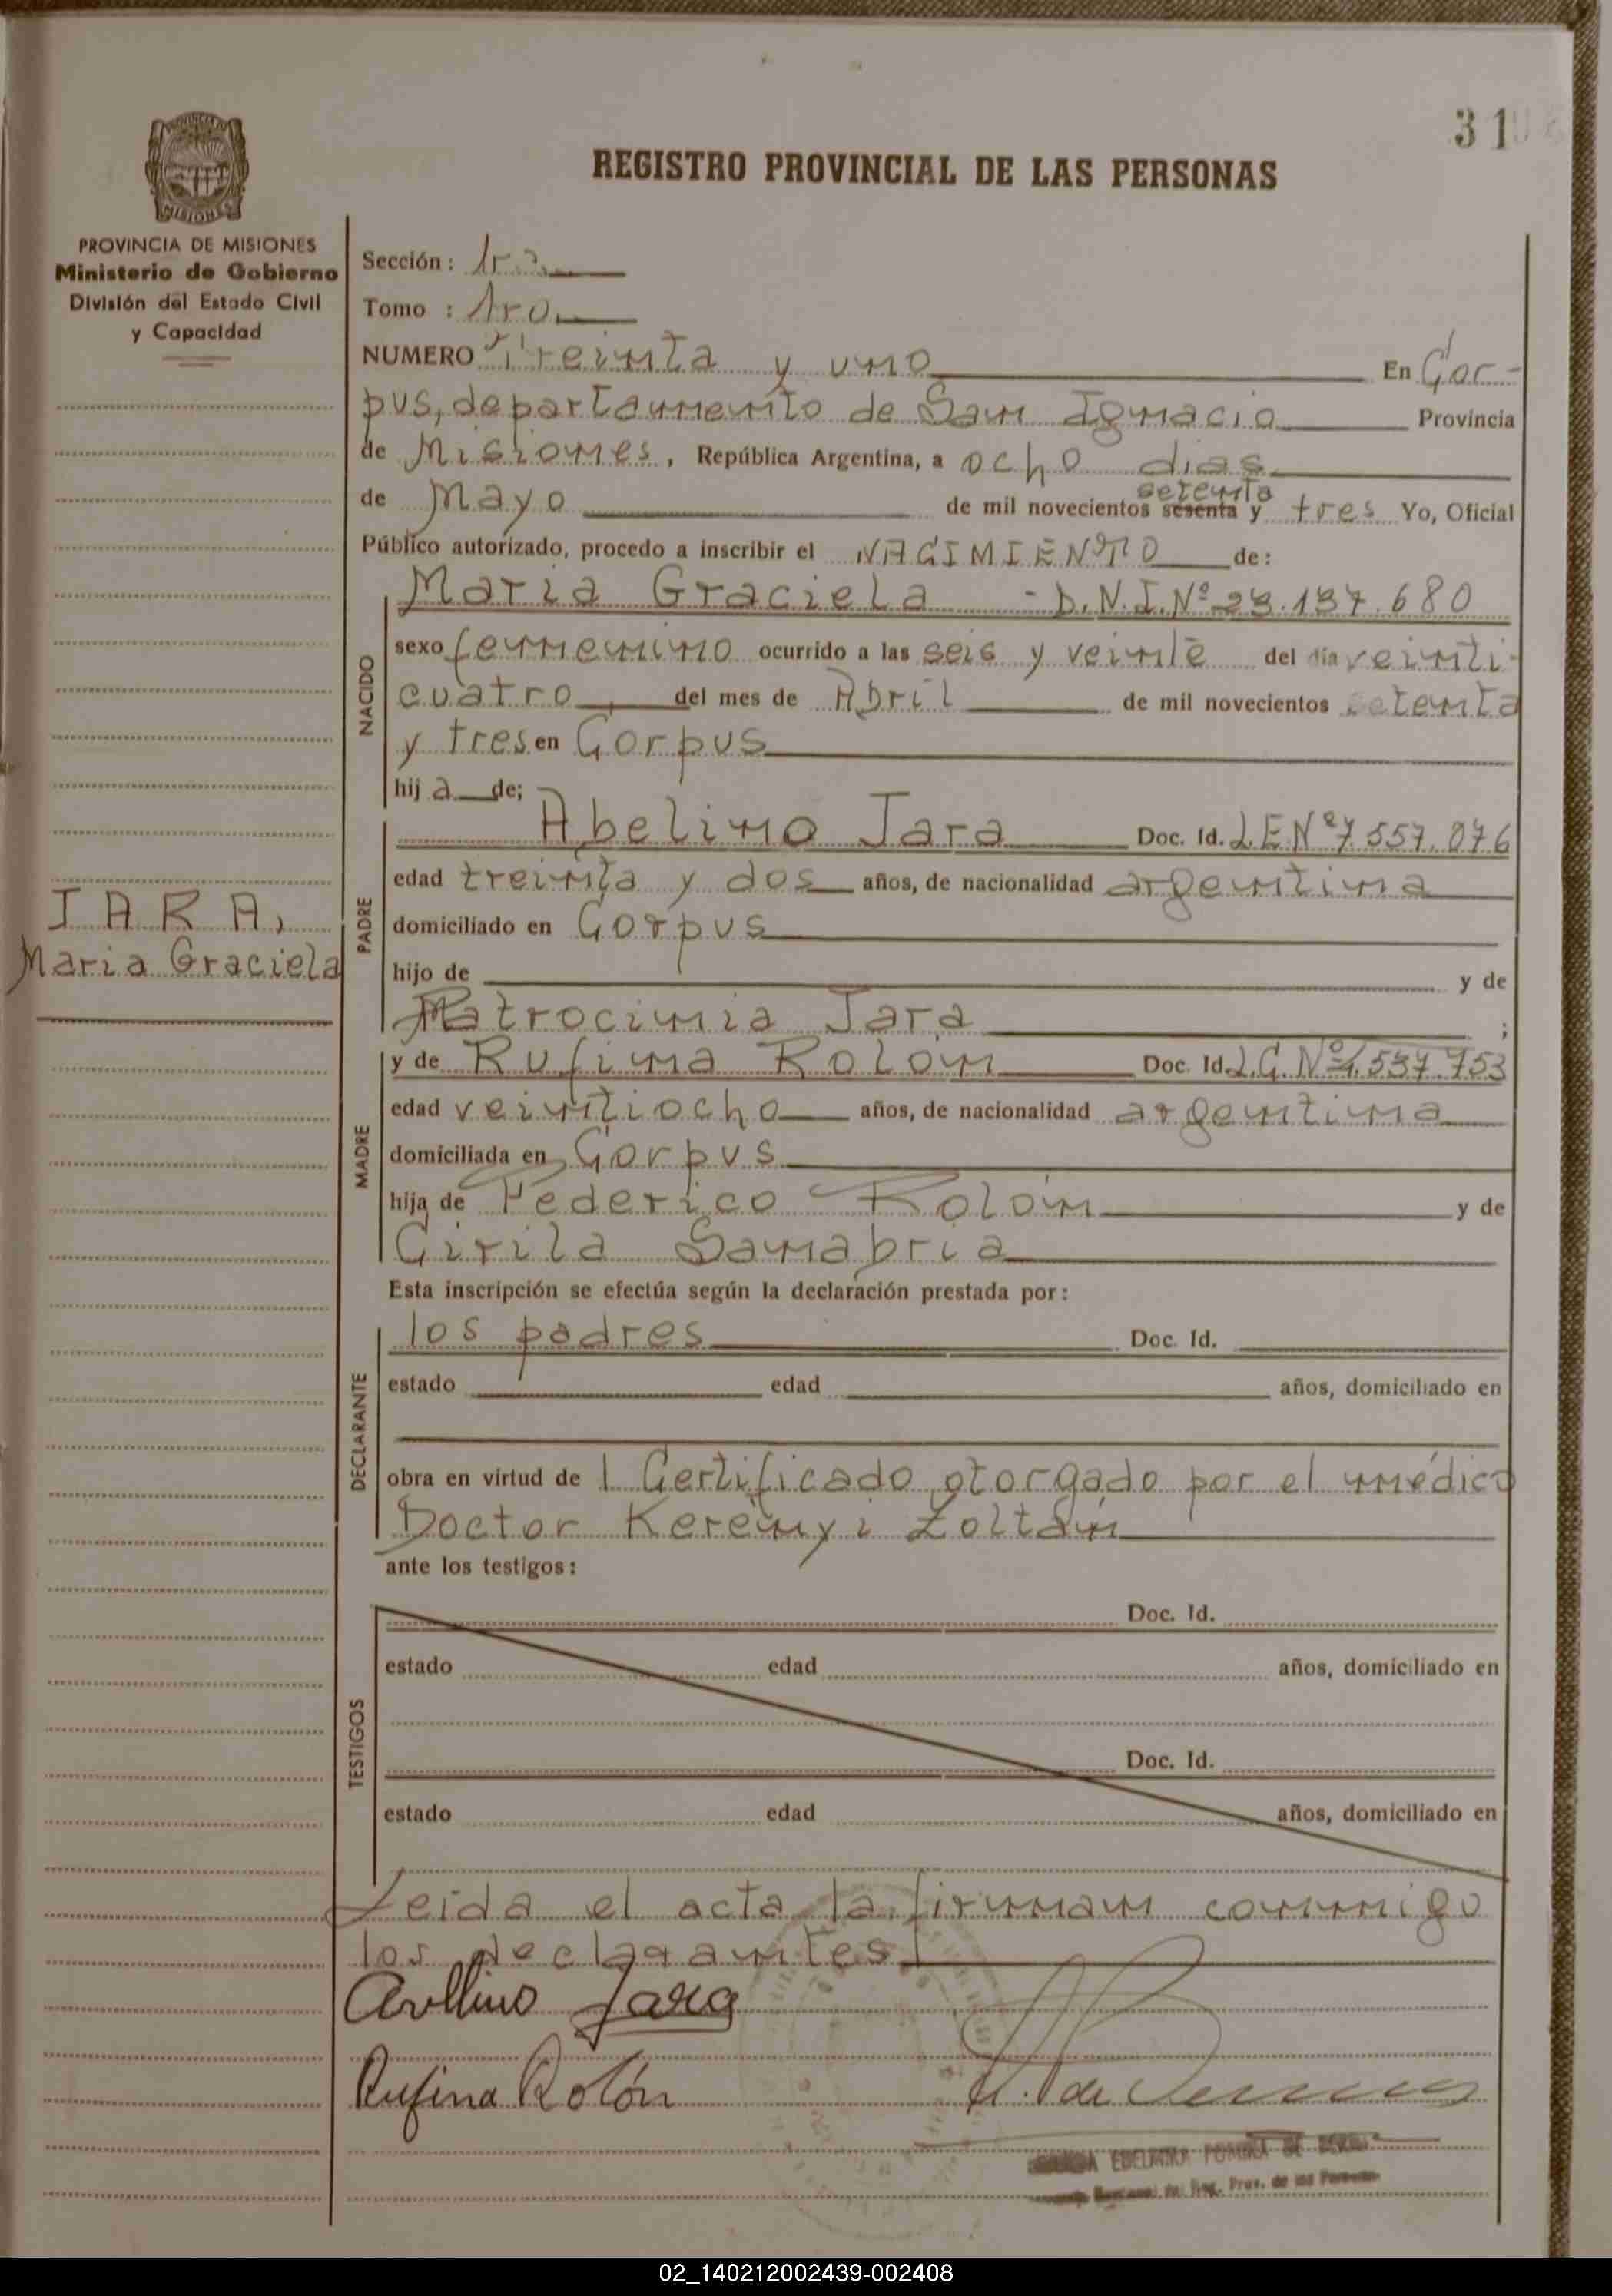 31
REGISTRO PROVINCIAL DE LAS PERSONAS
PROVINCIA DE MISIONES
Ministerio de Gobierno
División del Estado Civil
y Capacidad
JARA,
Maria Graciela
Sección: 1ra
Tomo : 1ro
NUMERO Treinta y uno En Cor-
pus, departamento de San Ignacio Provincia
de Misiones, República Argentina, a ocho dias
de Mayo de mil novecientos sesenta setenta y tres Yo, Oficial
Público autorizado, procedo a inscribir el NACIMIENTO de:
NACIDO
Maria Graciela - D.N.I.Nº 23.197.680
sexo femenino ocurrido a las seis y veinte del día veinti-
cuatro del mes de Abril de mil novecientos setenta
y tres en Corpus
hija de;
PADRE
Abelino Jara Doc. Id. L.E.Nº 7.557.076
edad treinta y dos años, de nacionalidad argentina
domiciliado en Corpus
hijo de y de
Patrocinia Jara ;
MADRE
y de Rufina Rolón Doc. Id. L.C.Nº 4.537.753
edad veintiocho años, de nacionalidad argentina
domiciliada en Corpus
hija de Federico Rolón y de
Cirila Sanabria
Esta inscripción se efectúa según la declaración prestada por:
DECLARANTE
los padres Doc. Id.
estado edad años, domiciliado en
obra en virtud de 1 Certificado otorgado por el médico
Doctor Kerényi Zoltán
ante los testigos:
TESTIGOS
Doc. Id.
estado edad años, domiciliado en
Doc. Id.
estado edad años, domiciliado en
Leida el acta la firman conmigo
los declarantes
Avellino Jara
Rufina Rolón
Reg. Prov. de las Personas
02_140212002439-002408